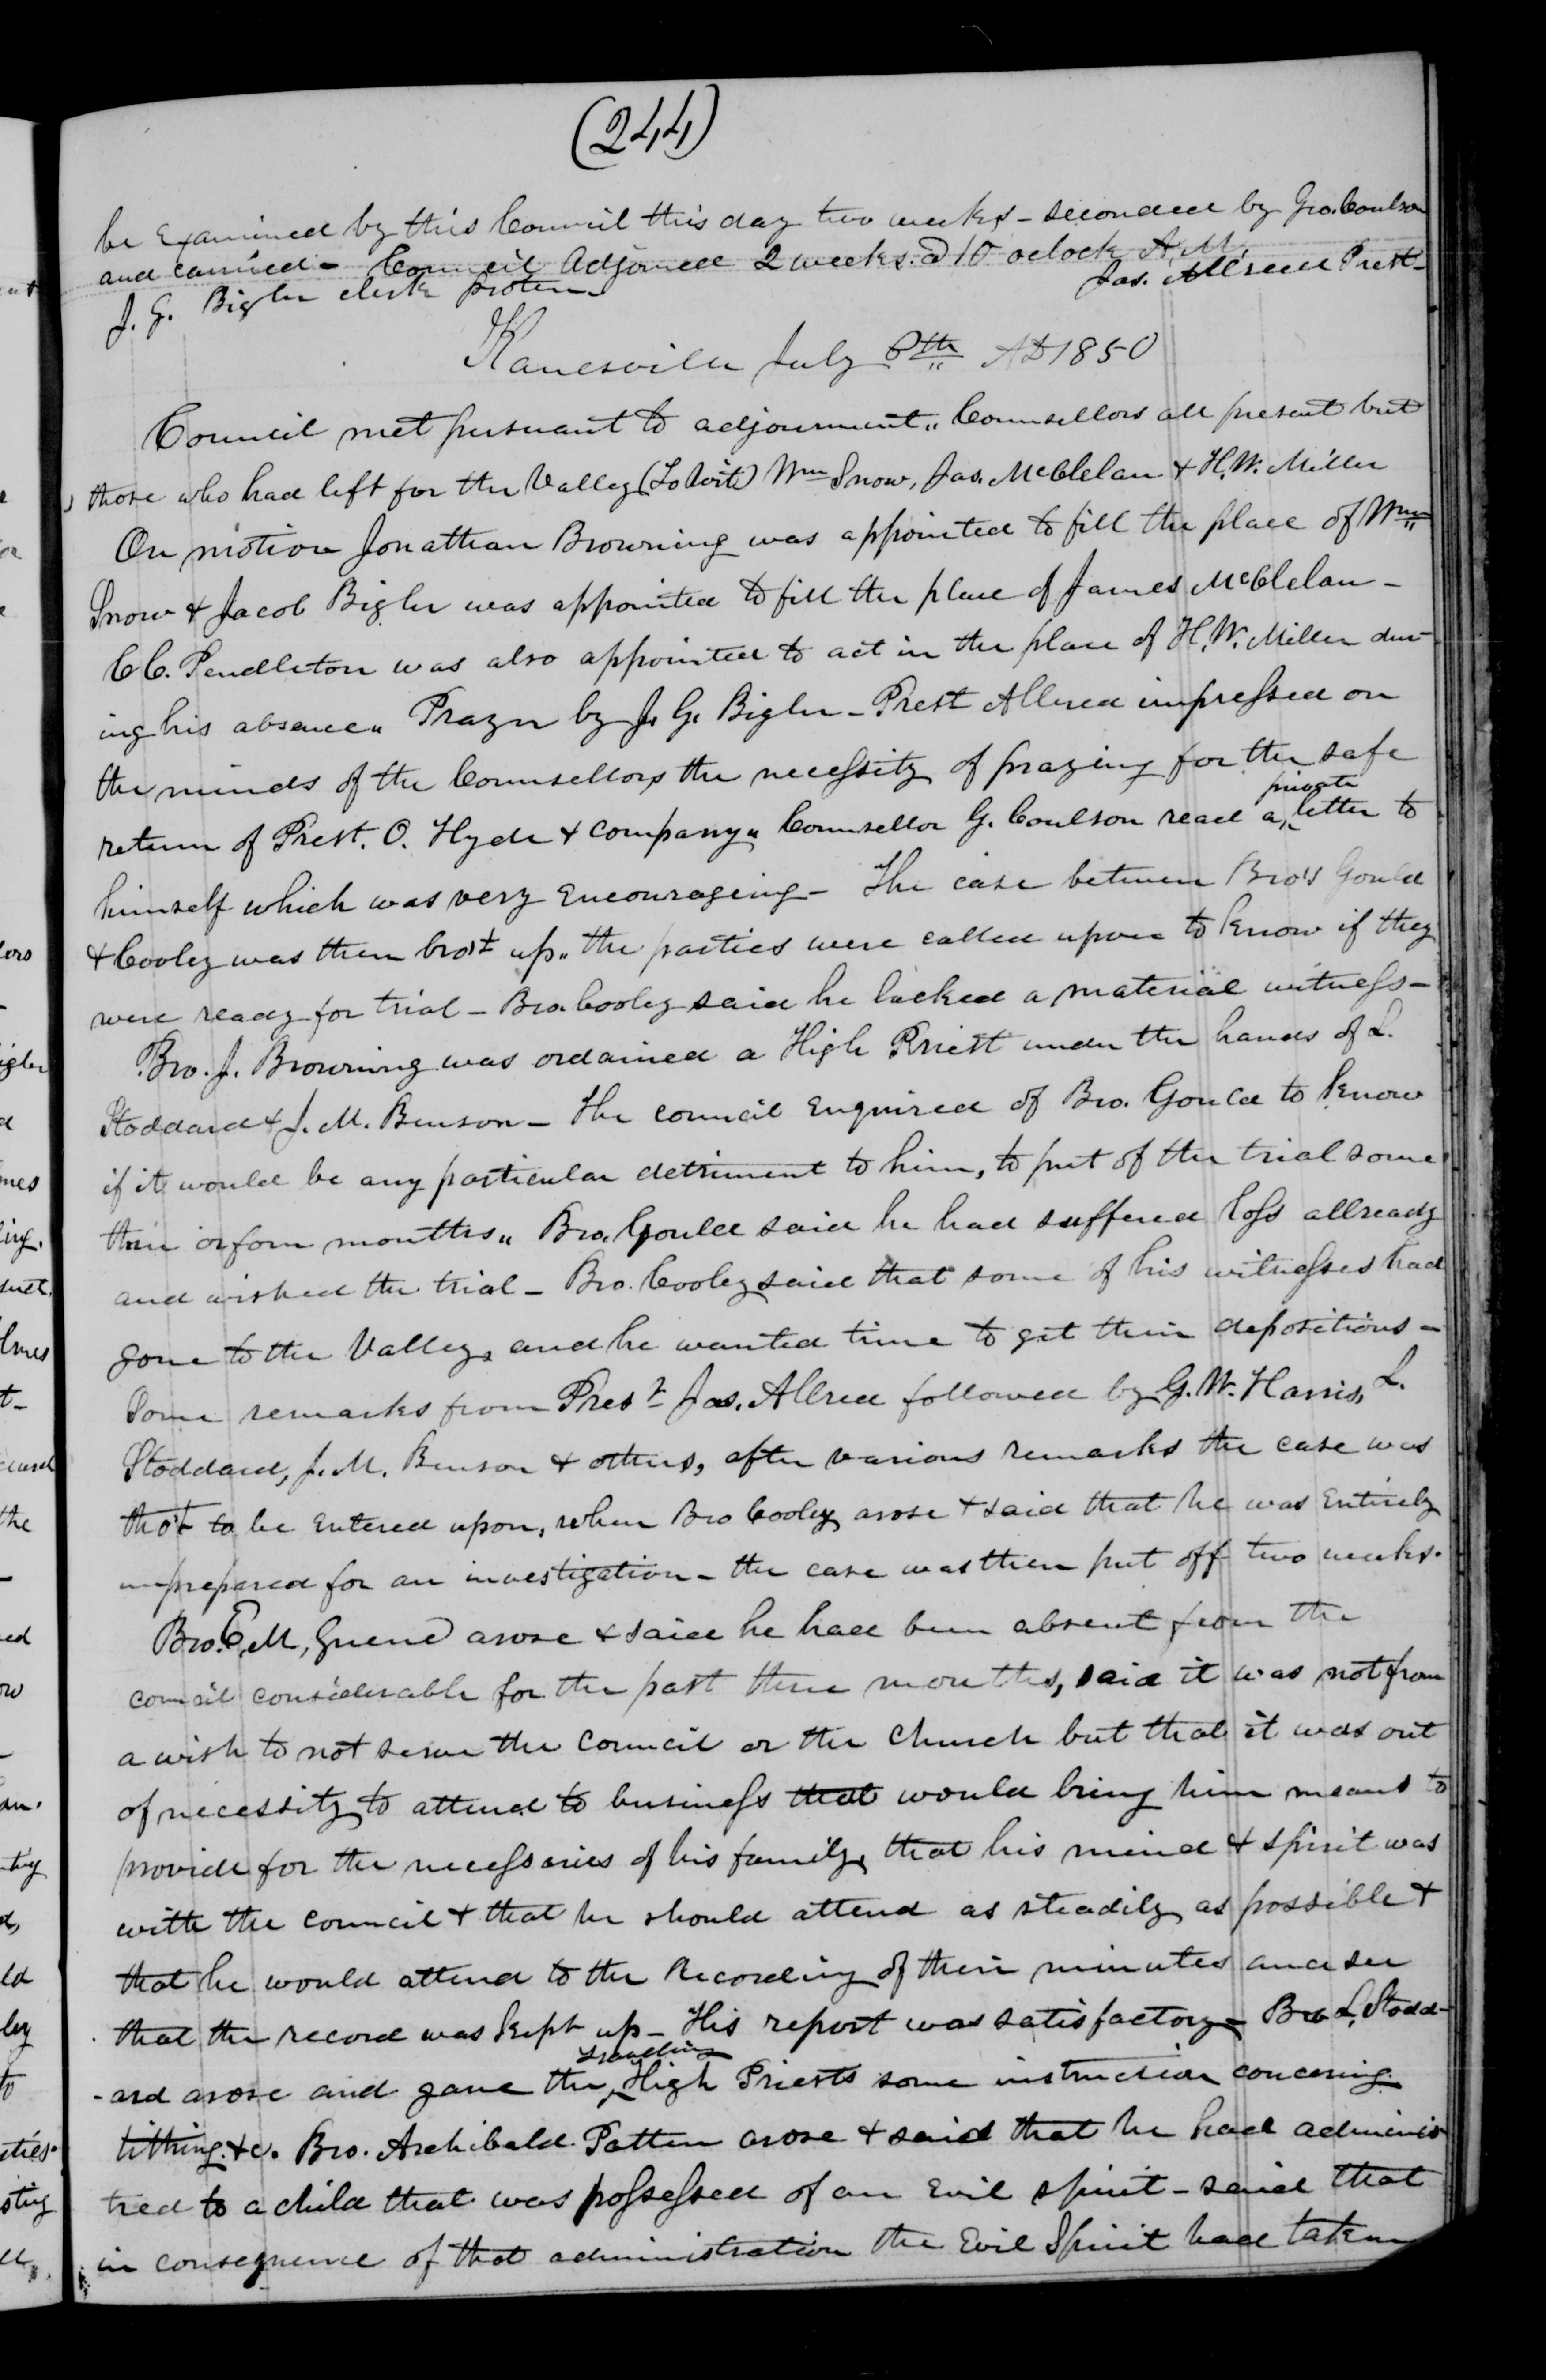 (244)
be Examined by this Council this day two weeks - seconded by Geo. Coulson
and carried - Council Adjorned 2 weeks. @ 10 oclock A.M.
Jas. Allred Prest-
J. G. Bigler clerk protem
Kanesville July 6th AD 1850
Council met pursuant to adjournment,, Counsellors all present but
those who had left for the Valley (To Wit) Wm Snow, Jas. McClelan & H. W. Miller
On motion Jonathan Browning was appointed to fill the place of Wm
Snow & Jacob Bigler was appointed to fill the place of James McClelan -
C C. Pendleton was also appointed to act in the place of H. W. Miller dur-
ing his absence,, Prayer by J. G. Bigler - Prest Allred impressed on
the minds of the Counsellors the necessity of praying for the safe
return of Prest. O. Hyde & company,, Counsellor G. Coulson read a private letter to
himself which was very Encourageing - The case between Bro's Gould
& Cooley was then bro't up,, the parties were called upon to know if they
were ready for trial - Bro. Cooley said he lacked a material witness -
Bro. J. Browning was ordained a High Priest under the hands of L.
Stoddard & J. M. Benson - The council Enquired of Bro. Gould to know
if it would be any particular detriment to him, to put of the trial some
three or four months,, Bro. Gould said he had suffered loss allready
and wished the trial - Bro. Cooley said that some of his witnesses had
gone to the Valley, and he wanted time to get their depositions -
Some remarks from Prest Jas. Allred followed by G. W. Harris, L.
Stoddard, J. M. Benson & others, after various remarks the case was
tho't to be Entered upon, when Bro Cooley arose & said that he was Entirely
unprepared for an investigation - the case was then put off two weeks.
Bro. E. M, Greene arose & said he had been absent from the
council considerable for the past three months, said it was not from
a wish to not serve the Council or the Church but that it was out
of necessity to attend to business that would bring him means to
provide for the necessaries of his family, that his mind & spirit was
with the council & that he should attend as steadily as possible &
that he would attend to the Recording of their minutes and see
that the record was kept up - His report was satisfactory - Bro L, Stodd-
-ard arose and gave the travelling High Priests some instruction concering
tithing. &c. Bro. Archibald Patten arose & said that he had adminis
tred to a child that was possessed of an Evil spirit - said that
in consequence of that administration the Evil Spirit had taken